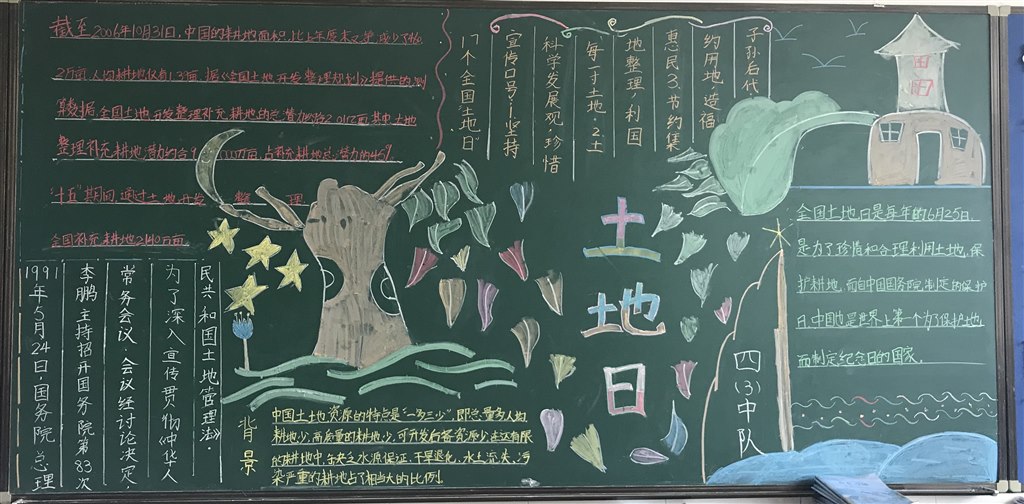 截至2006年10月31日,中国的耕地面积,比上年度末又
2万亩,人均耕地仅有1.3亩.据《全国土地开发整理规划》提供的测
算数据,全国土地开发整理补充耕地的总潜力约2.01亿亩其中土地
整理补充耕地潜力约合9 万亩,占补充耕地总潜力的45%
"十五"期间,通过土地开发 整 理
全国补充耕地2140万亩.
子孙后代
约用地,造福
惠民3.节约集
地整理,利国
每一寸土地·2.土
科学发展观,珍惜
宣传口号:1.坚持
17个全国土地日
土
地
日
全国土地日是每年的6月25日.
是为了珍惜和合理利用土地,保
护耕地,而由中国国务院制定的保护
日.中国也是世界上第一个为了保护地
而制定纪念日的国家.
四(3)中队
1991年5月24日,国务院总理
李鹏主持招开国务院第83次
常务会议.会议经讨论决定
为了深入宣传贯彻《中华人
民共和国土地管理法》.
背景
中国土土地资源的特点是"一多三少",即总量多人均
耕地少,高质量的耕地少,可开发后备资源少.在这有限
的耕地中,缺乏水源保证、干旱退化、水土流失、污
染严重的耕地占了相当大的比例.